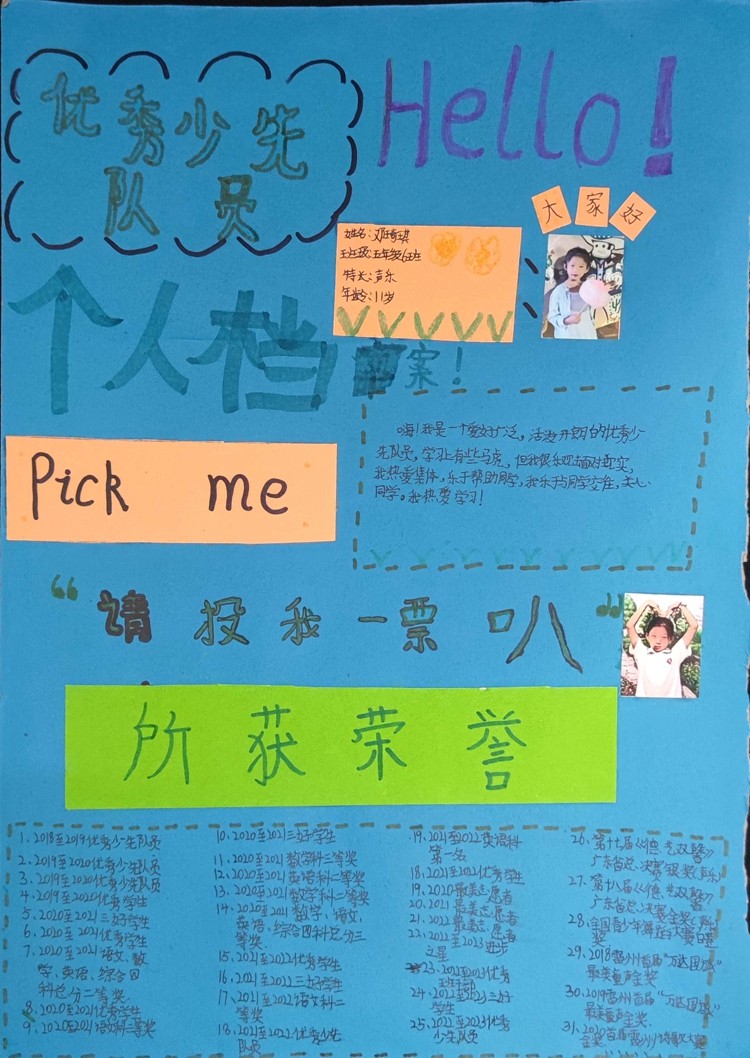 优秀少先
队员
Hello!
大家好
姓名:邓琦琪
班级:五年级6班
特长:声乐
年龄:11岁
个人档案!
嗨!我是一个爱好广泛,活泼开朗的优秀少
先队员,学习上有些马克,但我很乐观面对现实,
我热爱集体,乐于帮助同学,我乐于与同学交往,关心
同学。我热爱学习!
Pick me
“请投我一票叭”
所获荣誉
1、2018至2019优秀少先队员
2、2019至2020优秀少先队员
3、2019至2020优秀少先队员
4、2019至2020优秀学生
5、2020至2021三好学生
6、2020至2021优秀学生
7、2020至2021语文、数
学、英语、综合四
科总分二等奖
8、2020至2021优秀学生
9、2020至2021语文科二等奖
10、2020至2021三好学生
11、2020至2021数学科二等奖
12、2020至2021英语科一等奖
13、2020至2021数学科一等奖
14、2020至2021数学、语文、
英语、综合四科总分三
等奖
15、2021至2022优秀学生
16、2021至2022三好学生
17、2021至2022语文科二
等奖
18、2021至2022优秀少先
队员
19、2021至2022英语科
第一名
18、2021至2022优秀学生
19、2020最美志愿者
20、2021最美志愿者
21、2022最美志愿者
22、2022至2023进步
之星
23、2022至2023优秀
班干部
24、2022至2023三好
学生
25、2022至2023优秀
少先队员
26、第十七届《德艺双馨》
广东省总决赛银奖(声乐)
27、第十八届《德艺双馨》
广东省总决赛金奖
28、全国青少年
奖
29、2018雷州首届“万达国城”
最美童声金奖
30、2019雷州首届“万达国城”
最美童声金奖
31、2020首届雷州
金奖